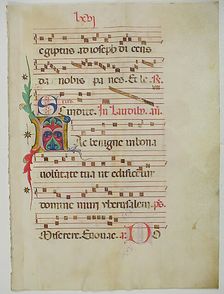 lxvi
egiptus ad ioseph dicens
da nobis panes. Et le. R.
Smorte. In laudib. an.
Ac benigne in bona
voluntate tua ut edificetur
domine muri iherusalem. ps.
Miserere. Evovae. a.